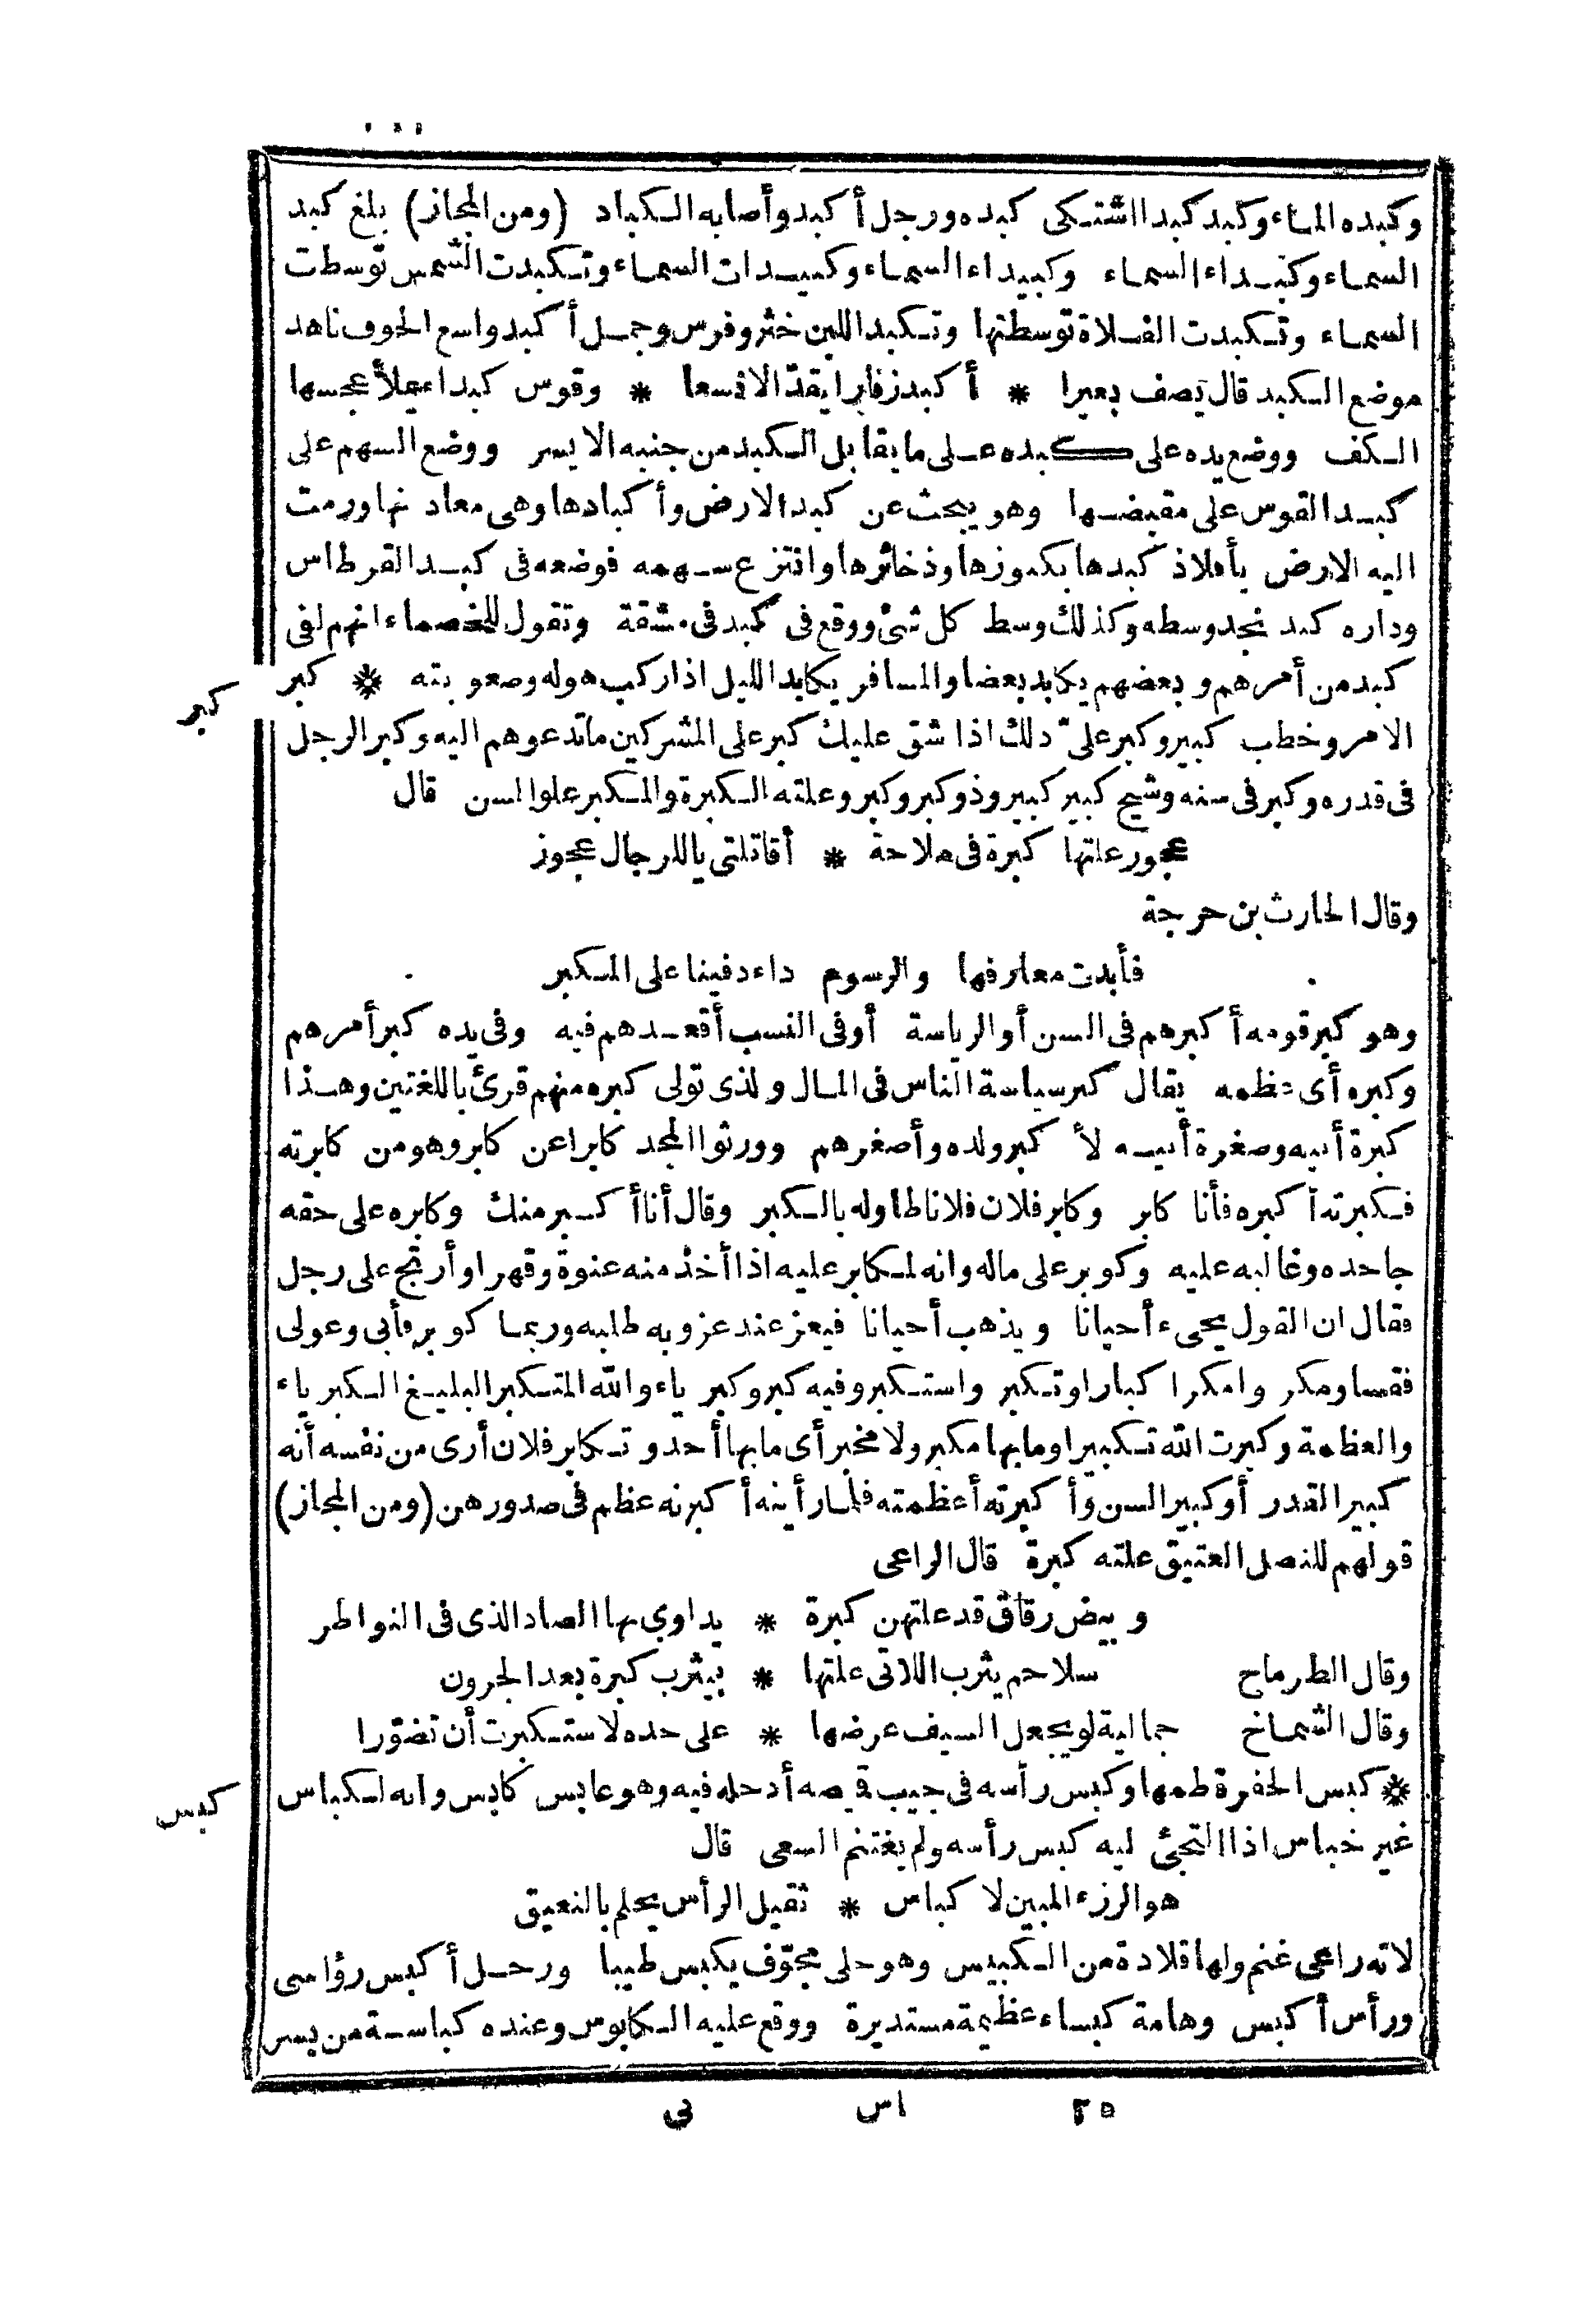 وكبده الماء وكبد كبدا اشتكى كبده ورجل أكبد وأصابه الكباد (ومن المجاز) بلغ كبد
السماء وكبداء السماء وكبيداء السماء وكبيدات السماء وتكبدت الشمس توسطت
السماء وتكبدت الفلاة توسطتها وتكبد اللبن خثر وفرس وجمل أكبد واسع الجوف ناهد
موضع الكبد قال يصف بعيرا * أكبد زفارا يقد الانسعا * وقوس كبداء يملأ عجسها
الكف ووضع يده على كبده على ما يقابل الكبد من جنبه الايسر ووضع السهم على
كبد القوس على مقبضها وهو يبحث عن كبد الارض وأكبادها وهى معادنها ورمت
اليه الارض بأفلاذ كبدها بكنوزها وذخائرها وانتزع سهمه فوضعه فى كبد القرطاس
وداره كبد نجد وسطه وكذلك وسط كل شئ ووقع فى كبد فى مشقة وتقول للخصماء انهم لفى
كبد من أمرهم وبعضهم يكابد بعضا والمسافر يكابد الليل اذا ركب هوله وصعوبته ❊ كبر
كبر
الامر وخطب كبير وكبر علىّ ذلك اذا شق عليك كبر على المشركين ما تدعوهم اليه وكبر الرجل
فى قدره وكبر فى سنه وشيخ كبير كبير وذو كبر وكبر وعلته الكبرة والمكبر علو السن قال
عجوز علتها كبرة فى ملاحة * أقاتلتى يا للرجال عجوز
وقال الحارث بن حرجة
فأبدت معارفها والرسوم داء دفينا على المكبر
وهو كبر قومه أكبرهم فى السن أو الرياسة أو فى النسب أقعدهم فيه وفى يده كبر أمرهم
وكبره أى عظمه يقال كبر سياسة الناس فى المال ولذى تولى كبره منهم قرئ باللغتين وهذا
كبرة أبيه وصغرة أبيه لأكبر ولده وأصغرهم وورثوا المجد كابرا عن كابر وهو من كابرته
فكبرته أكبره فأنا كابر وكابر فلان فلانا طاوله بالكبر وقال أنا أكبر منك وكابره على حقه
جاحده وغالبه عليه وكوبر على ماله وانه لمكابر عليه اذا أخذ منه عنوة وقهرا وأرتج على رجل
فقال ان القول يجىء أحيانا ويذهب أحيانا فيعز عند عزوبه طلبه وربما كوبر فأبى وعولى
فقسا ومكر وا مكرا كبارا وتكبر واستكبر وفيه كبر وكبرياء والله المتكبر البليغ الكبرياء
والعظمة وكبرت الله تكبيرا وما بها مكبر ولا مخبر أى ما بها أحد وتكابر فلان أرى من نفسه أنه
كبير القدر أو كبير السن وأكبرته أعظمته فلما رأينه أكبرنه عظم فى صدورهن (ومن المجاز)
قولهم للنصل العتيق علته كبرة قال الراعى
وبيض رقاق قد علتهن كبرة * يداوى بها الصاد الذى فى النواظر
وقال الطرماح سلاحم يثرب اللاتى علتها * بيثرب كبرة بعد الجرون
وقال الشماخ جمالية لو يجعل السيف عرضها * على حده لاستكبرت أن تضوّرا
❊ كبس الحفرة طمها وكبس رأسه فى جيب قيصه أدخله فيه وهو عابس كابس وانه لكباس
كبس
غير خباس اذا التجئ ليه كبس رأسه ولم يغتنم السعى قال
هو الرزء المبين لا كباس * ثقيل الرأس يحلم بالنعيق
لانه راعى غنم ولها قلادة من الكبيس وهو حلى مجوّف يكبس طيبا ورجل أكبس رؤاسى
ورأس أكبس وهامة كبساء عظيمة مستديرة ووقع عليه الكابوس وعنده كباسة من بسر
٢٥ اس نى